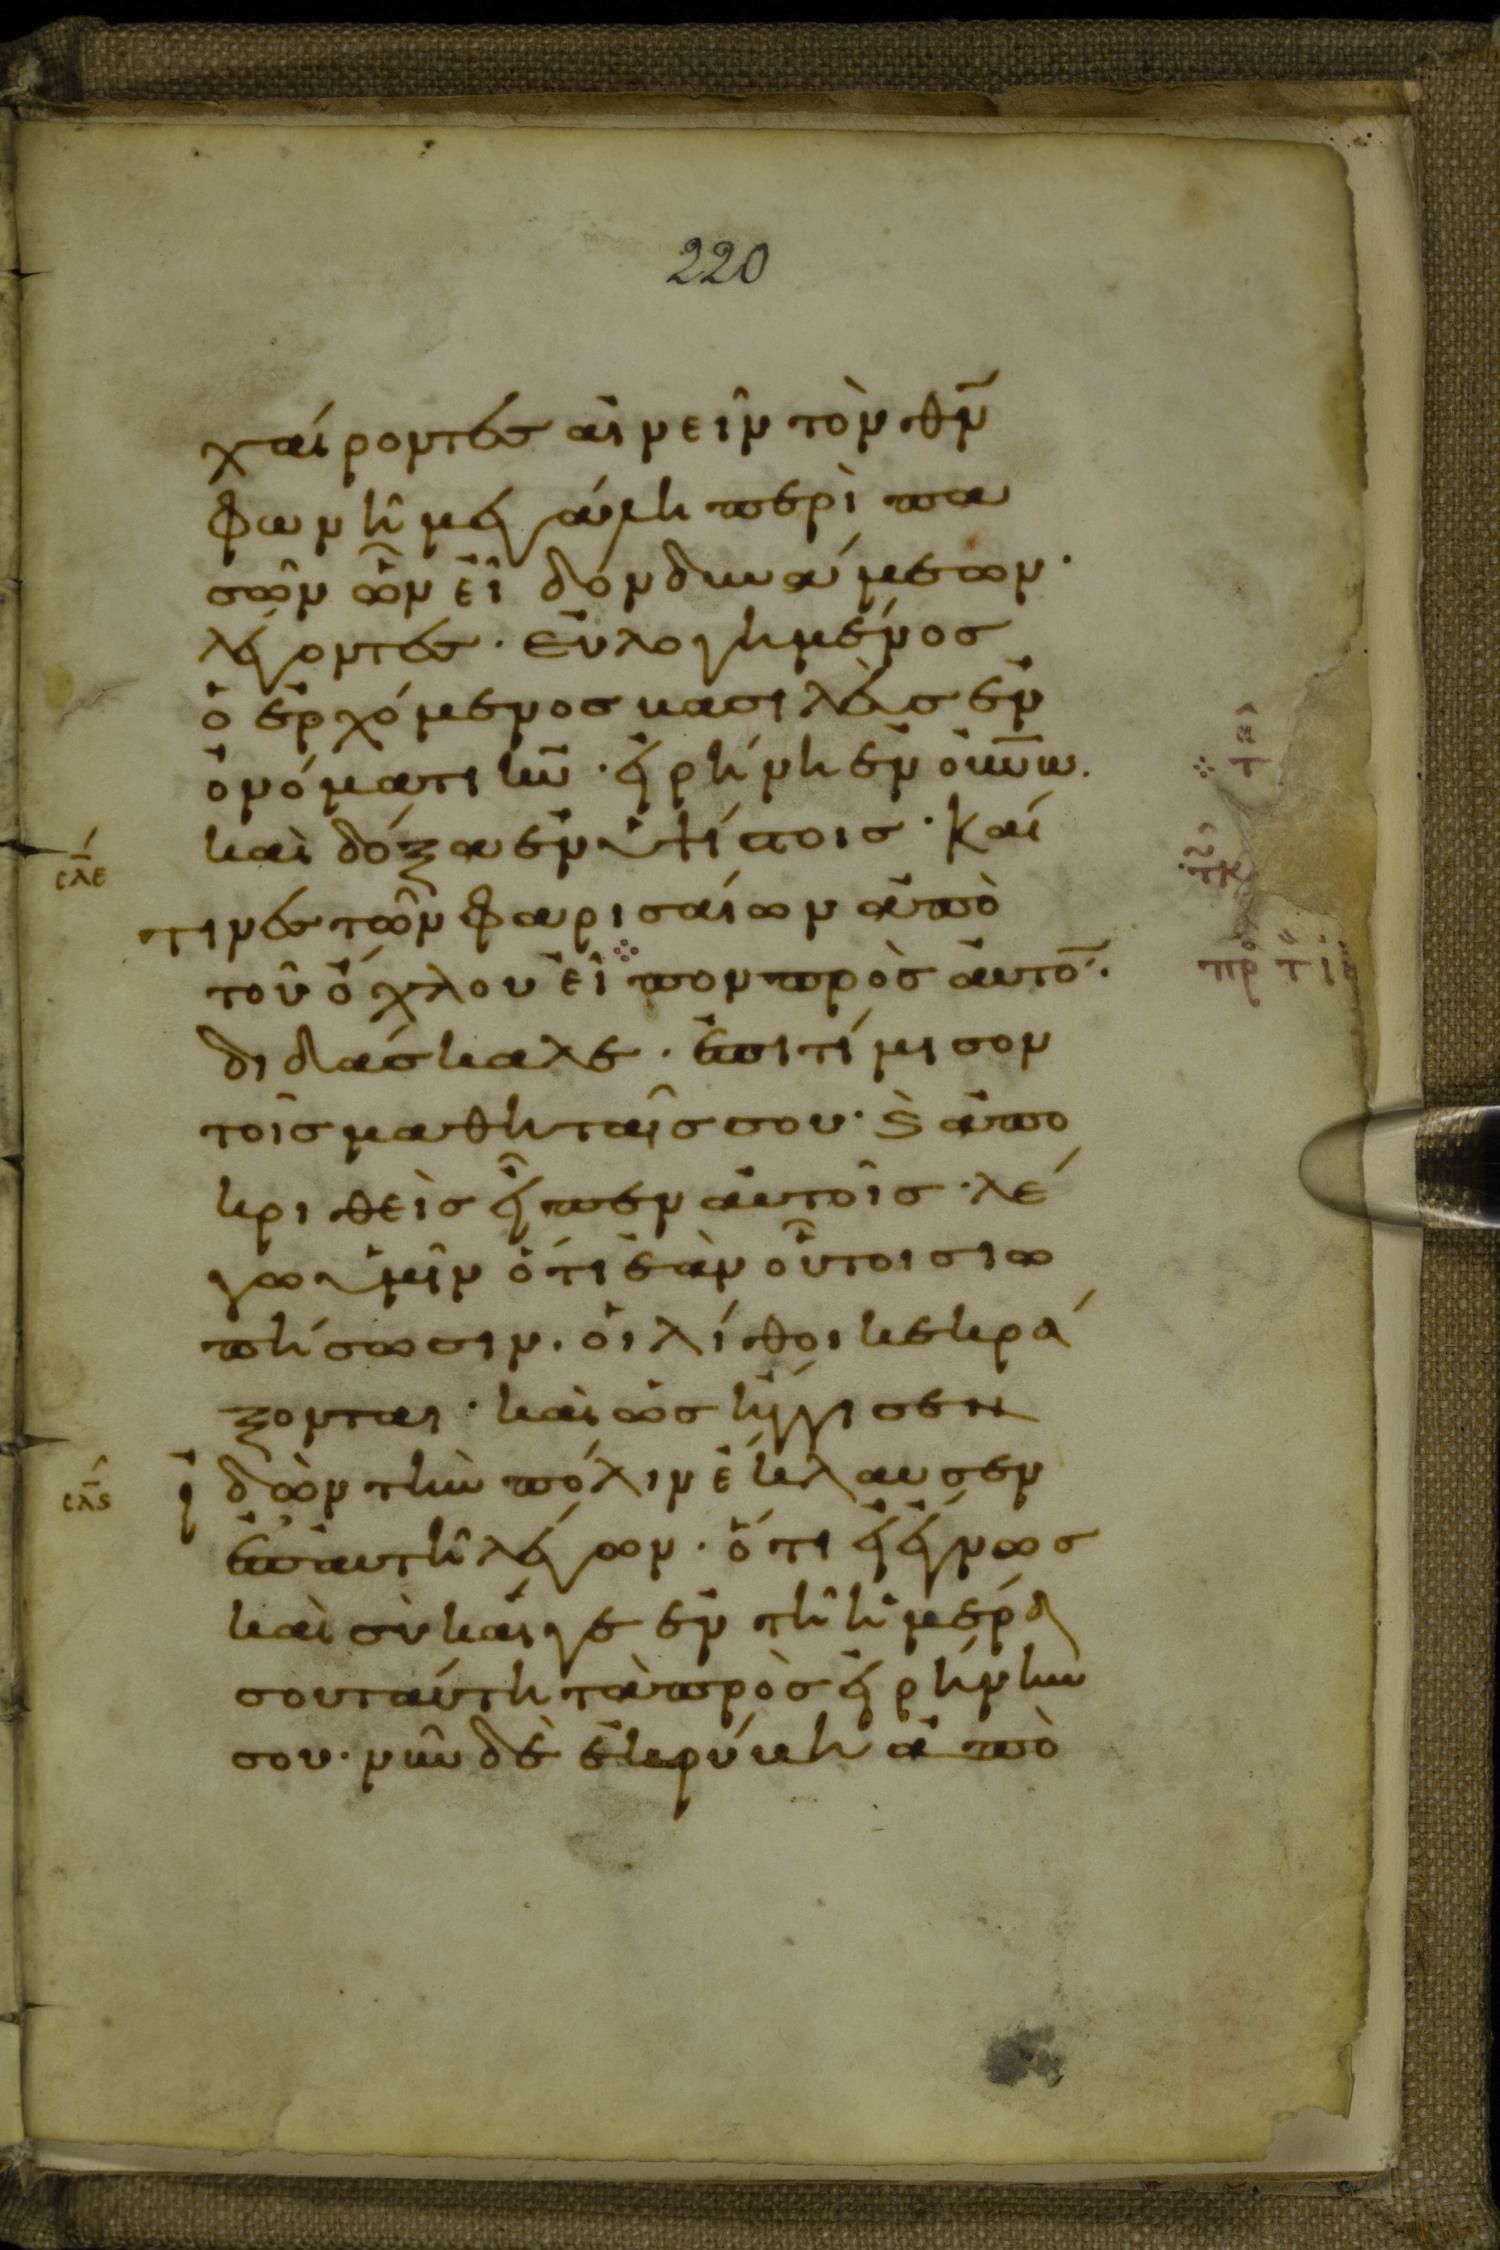 220
χαίροντες αἰνεῖν τὸν θν̄
φωνῆ μεγάλη περὶ πα
σῶν ὧν εἶδον δυνάμεων·
λέγοντες· εὐλογημένος
ὁ ἐρχόμενος βασιλεὺς ἐν
ὀνόματι κῡ· εἰρήνη ἐν οὐνω.
καὶ δόξα ἐν ὑψίστοις· Καί
τινὲς τῶν φαρισαίων ἀπὸ
τοῦ ὄχλου εἶπον πρὸς αὐτό̄·
διδάσκαλε· ἐπιτίμισον
τοῖς μαθηταῖς σου· ϗ ἀπο
κριθεὶς εἶπεν αὐτοῖς· λέ
γω ὑμῖν ὅτι ἐὰν οὗτοι σιω
πήσωσιν. οἱ λίθοι κεκρά
ξονται· καὶ ὡς ἤγγισεν
ἰδὼν τὴν πόλιν ἔκλαυσεν
ἐπ' αὐτῆ λέγων· ὅτι εἰ ἔγνως
καὶ σὺ καί γε ἐν τῆ ἡμέρα
σου ταύτη τὰ πρὸς εἰρήνην
σου· νῦν δὲ ἐκρύβη ἀπὸ
σλε
σλς